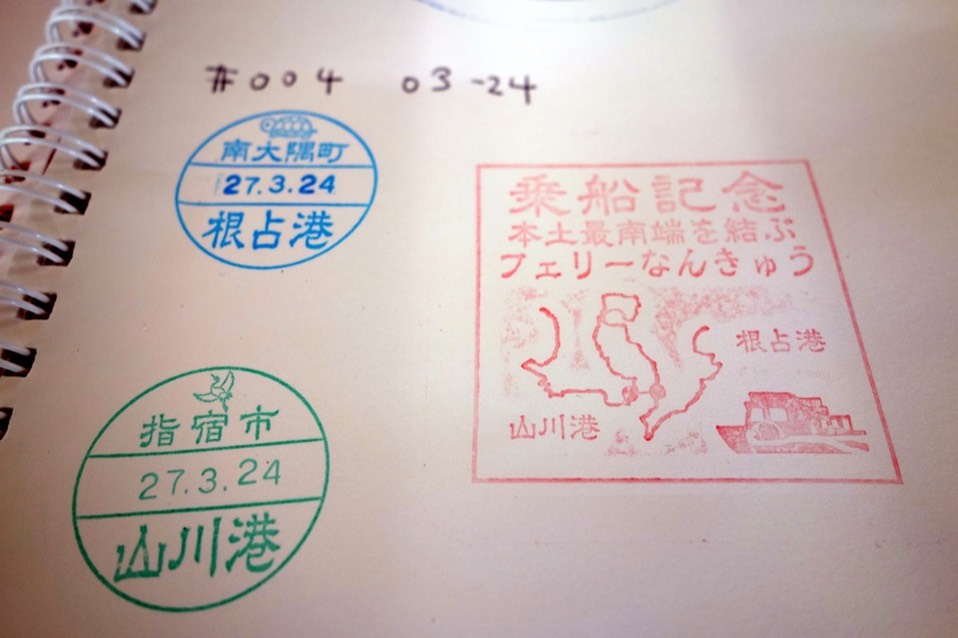 #004 03-24
南大隅町
27.3.24
根占港
乗船記念
本土最南端を結ぶ
フェリーなんきゅう
根占港
山川港
指宿市
27.3.24
山川港